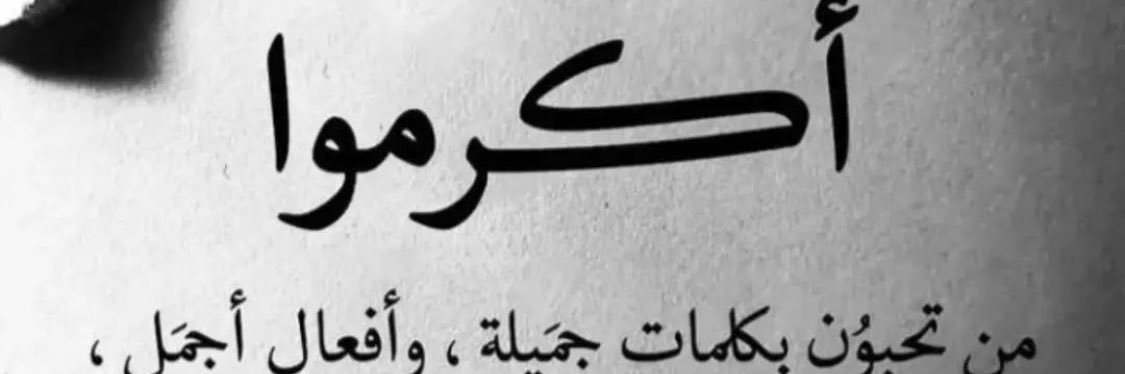 أكرموا
من تحبوُن بكلمات جمَيلة ، وأفعال أجمَل ،